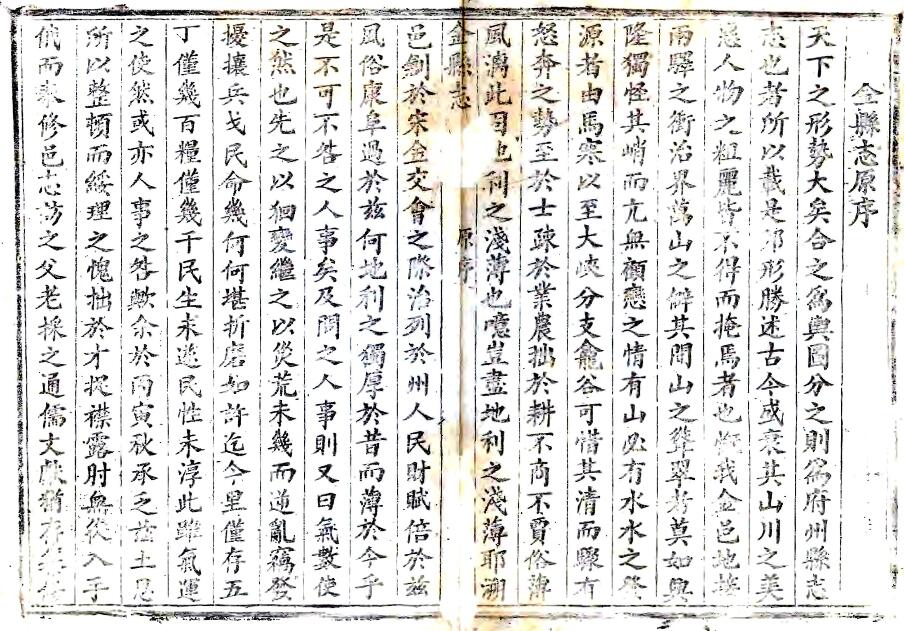 金縣志原序
天下之形勢大矣合之爲輿圖分之則爲府州縣志
志也者所以載是邦形勝述古今或衰其山川之美
惡人物之粗麗皆不得而掩焉者也惟我金邑地接
兩驛之衝治界萬山之僻其間山之聳翠者莫如興
隆獨怪其峭而亢無顧戀之情有山必有水水之發
源者由馬寒以至大峽分支龕谷可惜其清而驟有
怒奔之勢至於士疎於業農拙於耕不商不賈俗薄
風漓此因地利之淺薄也噫豈盡地利之淺薄耶溯
金縣志 原序
邑創於宋金交會之際治列於州人民財賦倍於兹
風俗康阜過於兹何地利之獨厚於昔而薄於今乎
是不可不咎之人事矣及問之人事則又曰氣數使
之然也先之以徊變繼之以災荒未幾而逆亂竊發
擾攘兵戈民命幾何何堪折磨如許迄今里僅存五
丁僅幾百糧僅幾千民生未遂民性未淳此雖氣運
之使然或亦人事之咎歟余於丙寅秋承乏兹土思
所以整頓而綏理之愧拙於才捉襟露肘無從入手
俄而奉修邑志訪之父老採之通儒文獻猶存